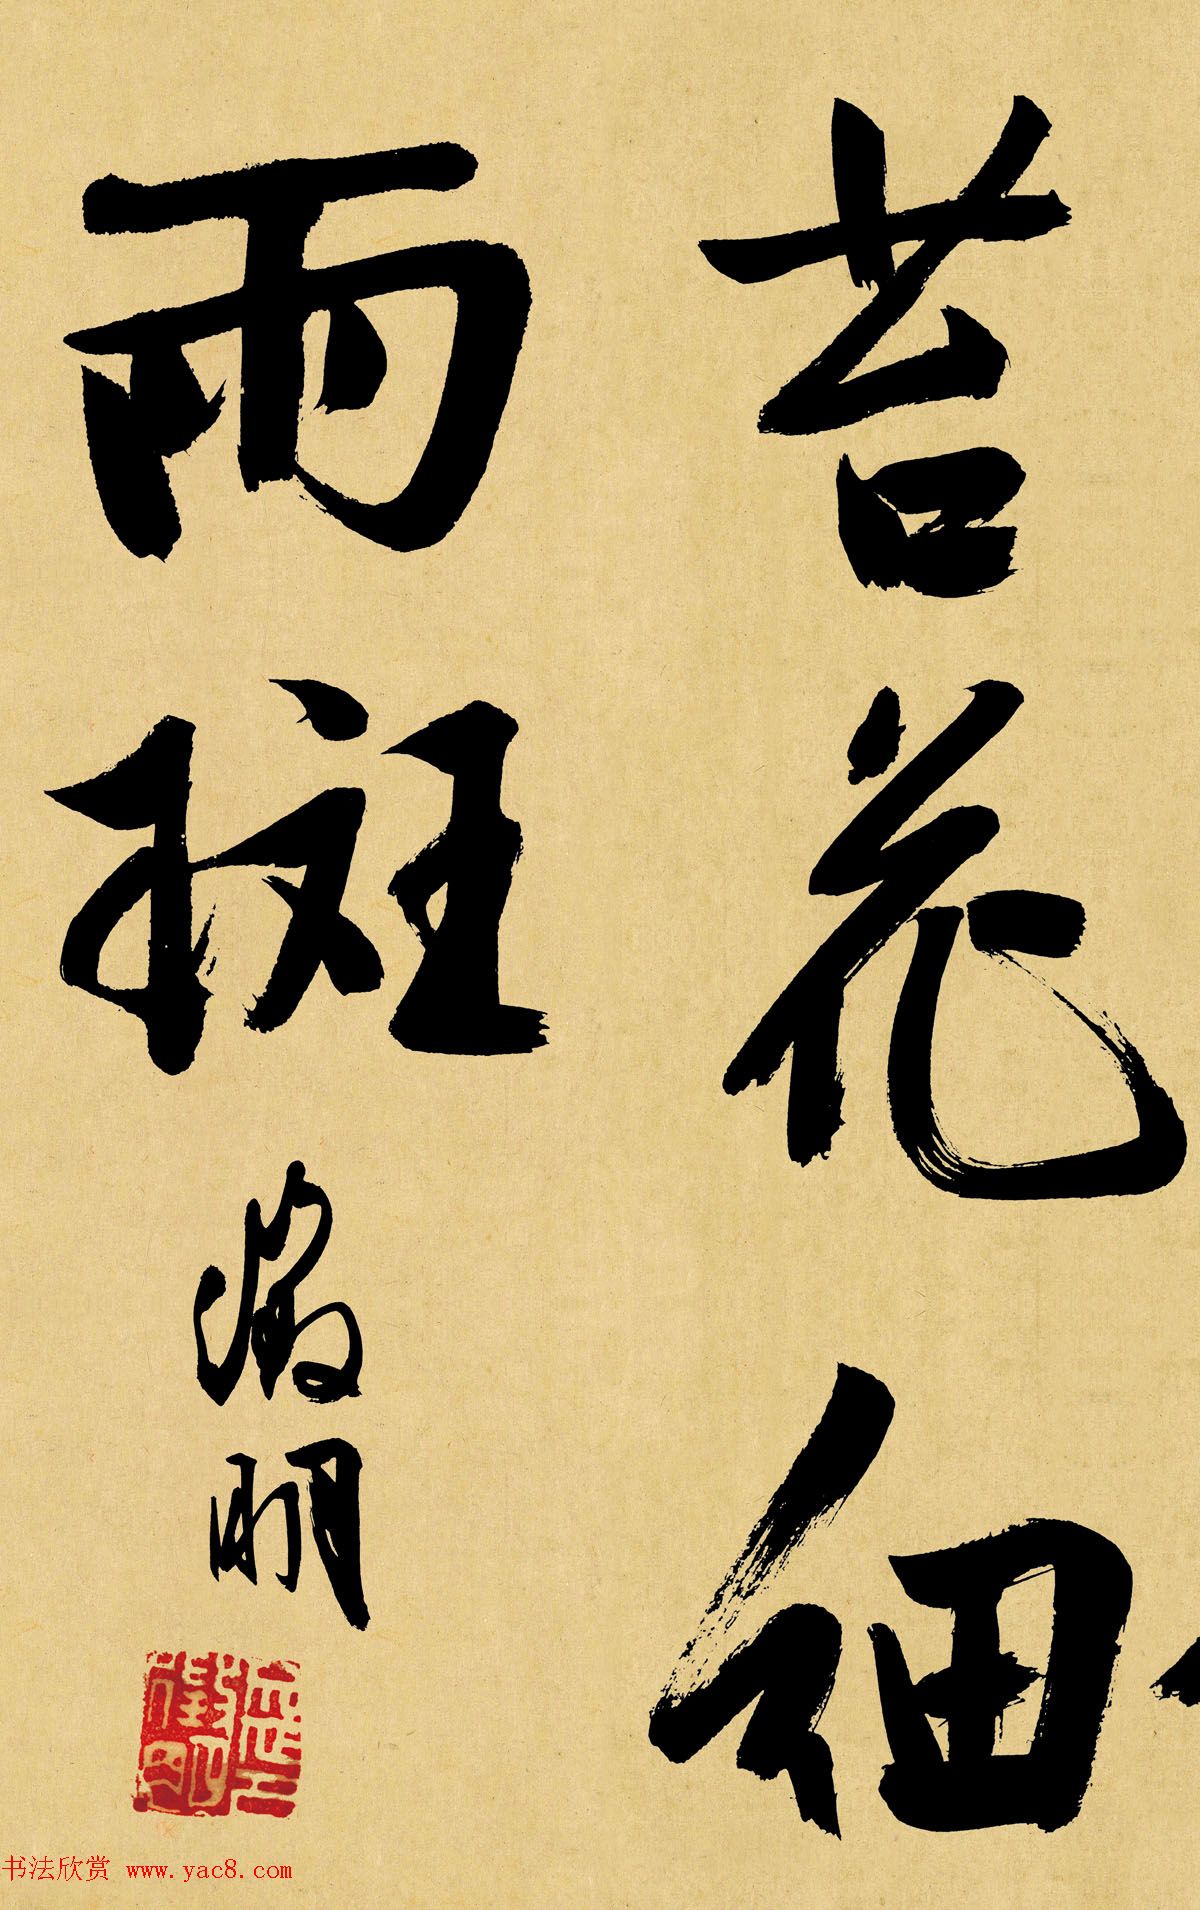 苔花细
雨斑
徵明
书法欣赏 www.yac8.com